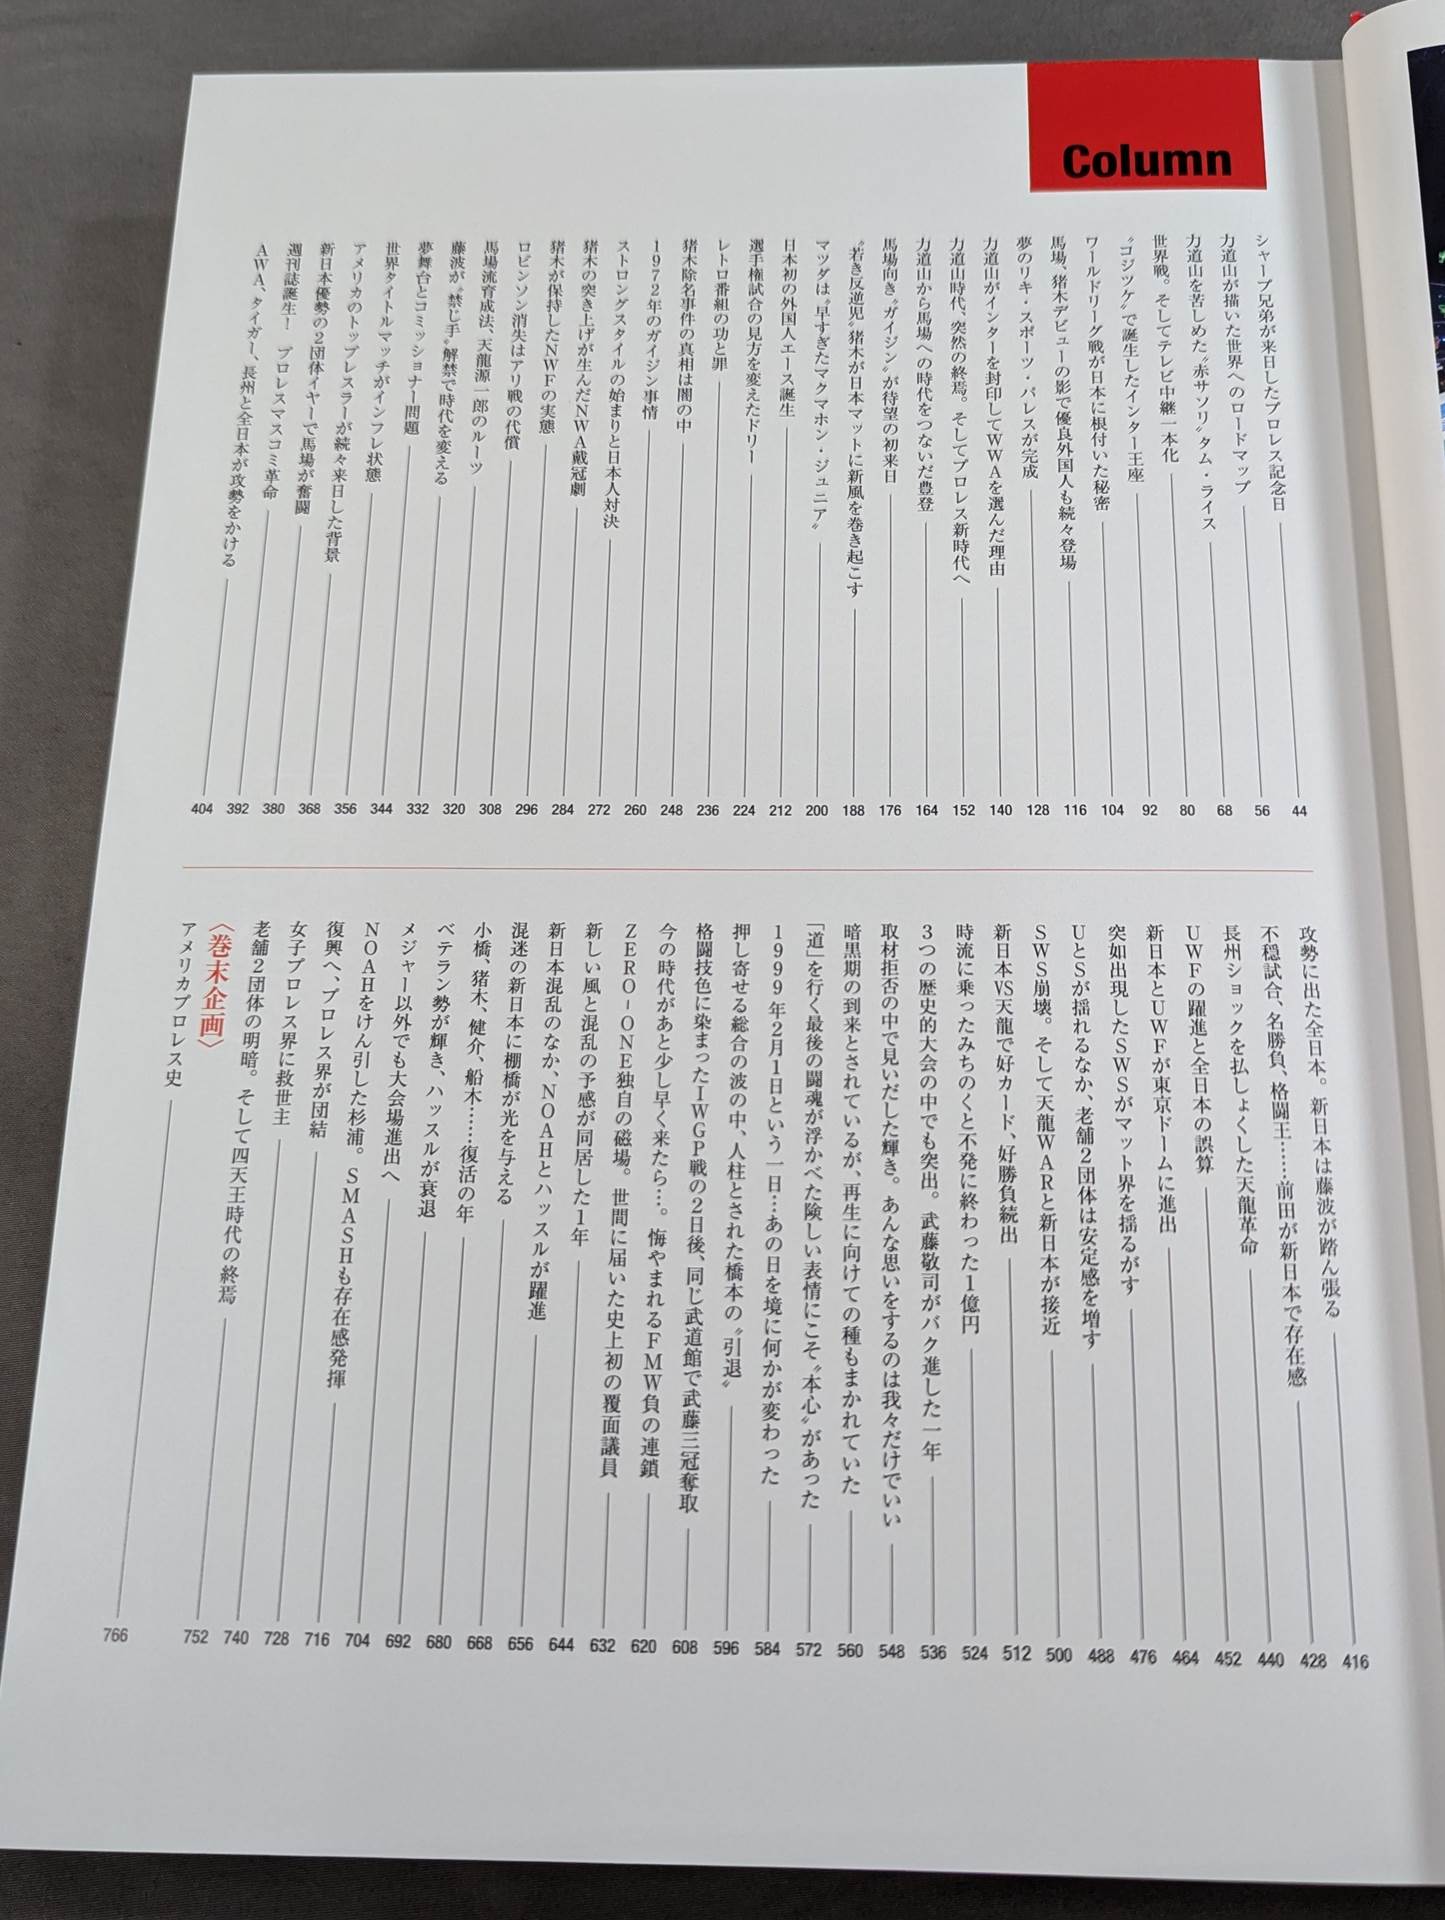 Column
シャープ兄弟が来日したプロレス記念日 44
力道山が描いた世界へのロードマップ 56
力道山を苦しめた〝赤サソリ〟タム・ライス 68
世界戦。そしてテレビ中継一本化 80
〝コジツケ〟で誕生したインター王座 92
ワールドリーグ戦が日本に根付いた秘密 104
馬場、猪木デビューの影で優良外国人も続々登場 116
夢のリキ・スポーツ・パレスが完成 128
力道山がインターを封印してWWAを選んだ理由 140
力道山時代、突然の終焉。そしてプロレス新時代へ 152
力道山から馬場への時代をつないだ豊登 164
馬場向き〝ガイジン〟が待望の初来日 176
〝若き反逆児〟猪木が日本マットに新風を巻き起こす 188
マツダは〝早すぎたマクマホン・ジュニア〟 200
日本初の外国人エース誕生 212
選手権試合の見方を変えたドリー 224
レトロ番組の功と罪 236
猪木除名事件の真相は闇の中 248
1972年のガイジン事情 260
ストロングスタイルの始まりと日本人対決 272
猪木の突き上げが生んだNWA戴冠劇 284
猪木が保持したNWFの実態 296
ロビンソン消失はアリ戦の代償 308
馬場流育成法、天龍源一郎のルーツ 320
藤波が〝禁じ手〟解禁で時代を変える 332
夢舞台とコミッショナー問題 344
世界タイトルマッチがインフレ状態 356
アメリカのトップレスラーが続々来日した背景 368
新日本優勢の2団体イヤーで馬場が奮闘 380
週刊誌誕生! プロレスマスコミ革命 392
AWA、タイガー、長州と全日本が攻勢をかける 404
攻勢に出た全日本。新日本は藤波が踏ん張る 416
不穏試合、名勝負、格闘王……前田が新日本で存在感 428
長州ショックを払しょくした天龍革命 440
UWFの躍進と全日本の誤算 452
新日本とUWFが東京ドームに進出 464
突如出現したSWSがマット界を揺るがす 476
UとSが揺れるなか、老舗2団体は安定感を増す 488
SWS崩壊。そして天龍WARと新日本が接近 500
新日本VS天龍で好カード、好勝負続出 512
時流に乗ったみちのくと不発に終わった1億円 524
3つの歴史的大会の中でも突出。武藤敬司がバク進した一年 536
取材拒否の中で見いだした輝き。あんな思いをするのは我々だけでいい 548
暗黒期の到来とされているが、再生に向けての種もまかれていた 560
「道」を行く最後の闘魂が浮かべた険しい表情にこそ〝本心〟があった 572
1999年2月1日という一日…あの日を境に何かが変わった 584
押し寄せる総合の波の中、人柱とされた橋本の〝引退〟 596
格闘技色に染まったIWGP戦の2日後、同じ武道館で武藤三冠奪取 608
今の時代があと少し早く来たら…。悔やまれるFMW負の連鎖 620
ZERO-ONE独自の磁場。世間に届いた史上初の覆面議員 632
新しい風と混乱の予感が同居した1年 644
新日本混乱のなか、NOAHとハッスルが躍進 656
混迷の新日本に棚橋が光を与える 668
小橋、猪木、健介、船木……復活の年 680
ベテラン勢が輝き、ハッスルが衰退 692
メジャー以外でも大会場進出へ 704
NOAHをけん引した杉浦。SMASHも存在感発揮 716
復興へ、プロレス界が団結 728
女子プロレス界に救世主 740
老舗2団体の明暗。そして四天王時代の終焉 752
〈巻末企画〉
アメリカプロレス史 766